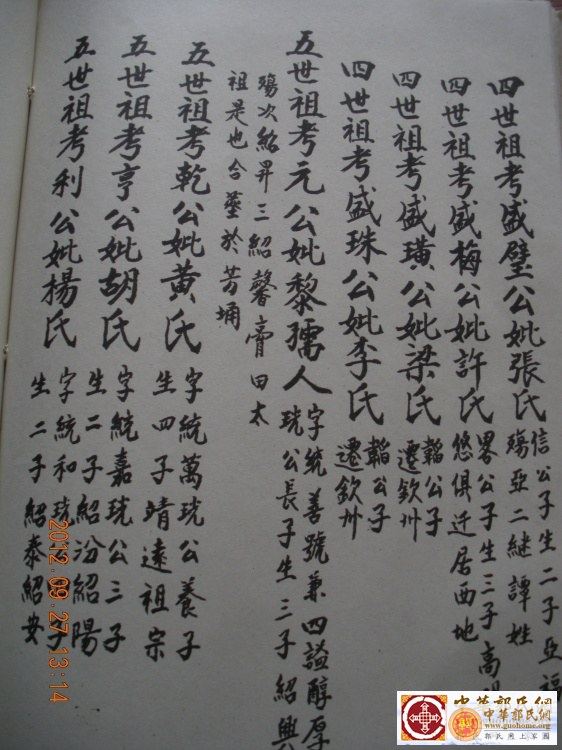 四世祖考盛璧公妣張氏
信公子生二子亞福
殤亞二継譚姓
四世祖考盛梅公妣許氏
畧公子生三子高
悠俱迁居西地
四世祖考盛璜公妣梁氏
韜公子
遷欽州
四世祖考盛珠公妣李氏
韜公子
遷欽州
五世祖考元公妣黎孺人
字統善號兼四謚醇厚
珖公長子生三子紹興
殤次紹昇三紹馨膏田太
祖是也合塟於芳埇
五世祖考乾公妣黃氏
字統萬珖公養子
生四子靖遠祖宗
五世祖考亨公妣胡氏
字統嘉珖公三子
生二子紹汾紹陽
五世祖考利公妣楊氏
字統和珖公子
生二子紹泰紹安
2012.09.27 13:14
中華郭氏網
中華郭氏網
www.guohome.org
郭氏网上家園